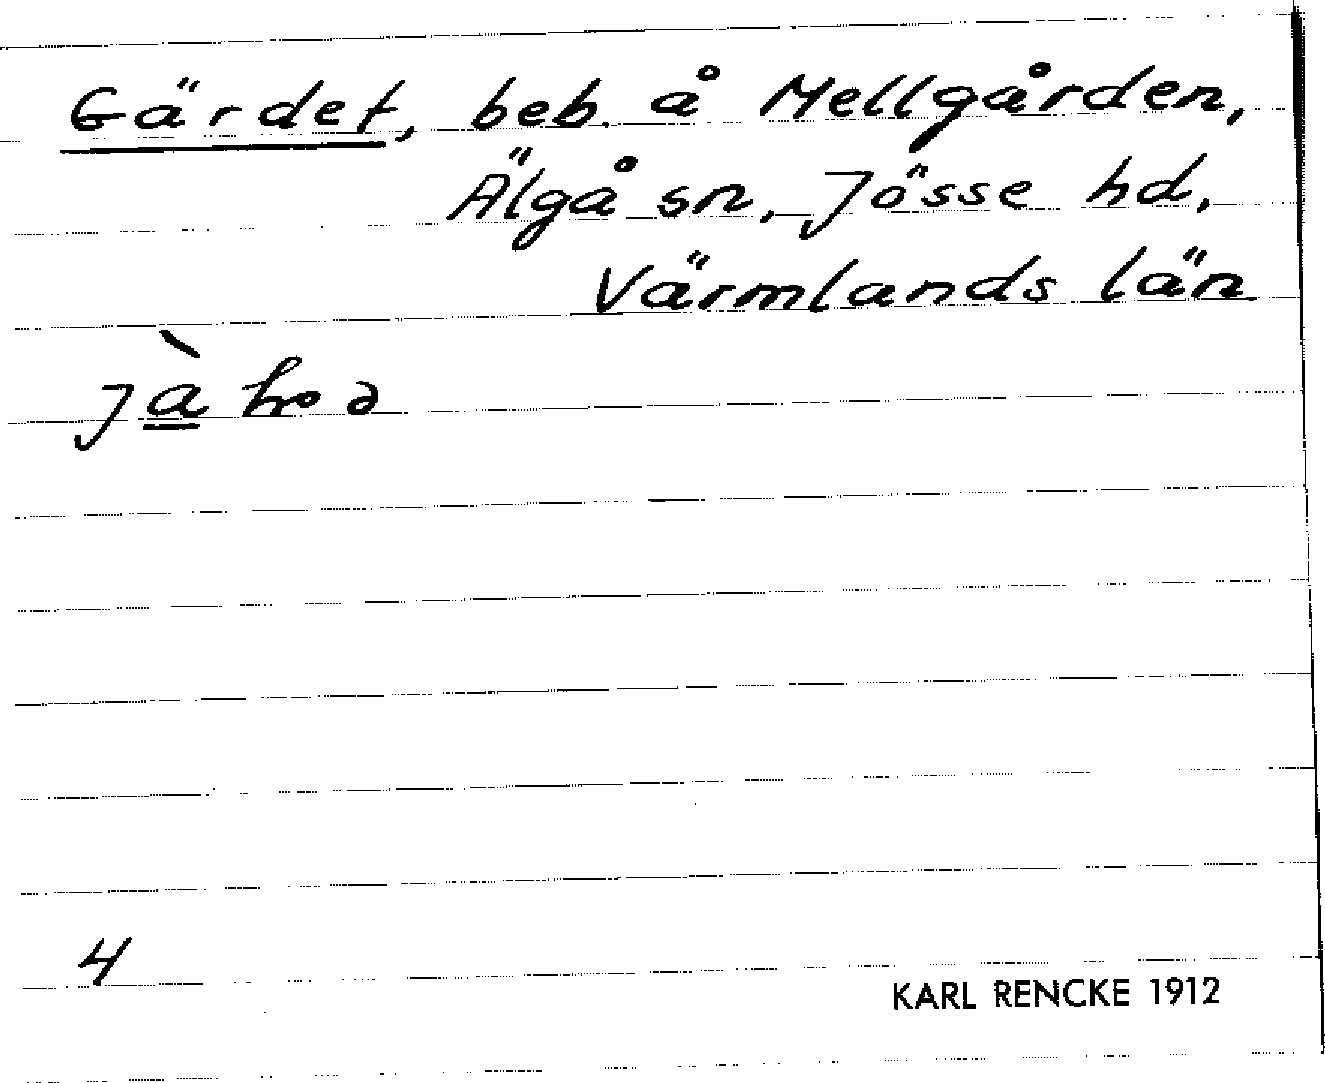 Gärdet, beb. å Mellgården,
Älgå sn, Jösse hd,
Värmlands län
4
KARL RENCKE 1912